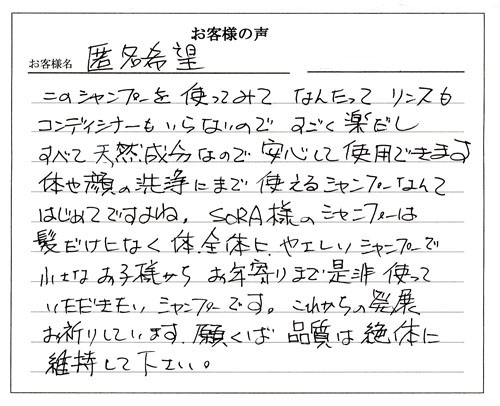 お客様の声
お客様名 匿名希望
このシャンプーを使ってみてなんたって リンスも
コンディショナーもいらないので すごく楽だし
すべて天然成分なので安心して使用できます
体や顔の洗浄にまで使えるシャンプーなんて
はじめてですよね。SORA様のシャンプーは
髪だけじなく体全体に やさしいシャンプーで
小さなお子様から お年寄りまで是非使って
いただきたいシャンプーです。これからの発展
お祈りしています。願くば品質は絶体に
維持して下さい。